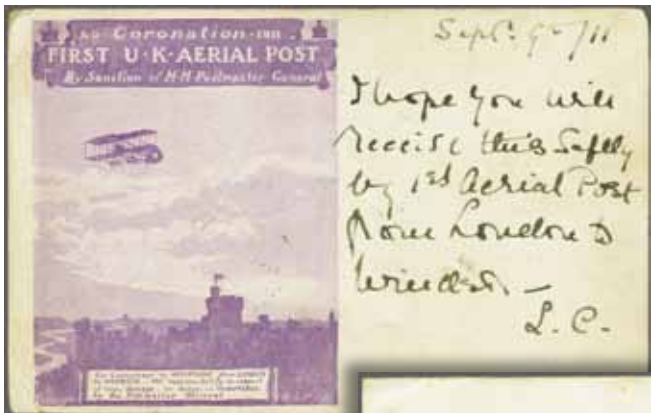 A·D Coronation 1911
FIRST U·K·AERIAL POST
By Sanction of H·M Postmaster General
Sept. 9th /11
I hope you will
receive this safely
by 1st Aerial Post
from London to
Windsor —
L. C.